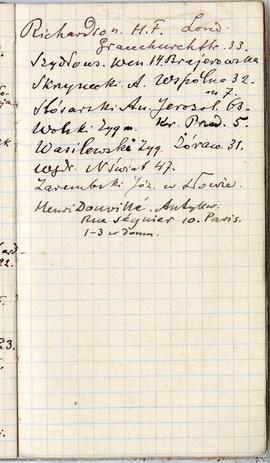 Richardson. H. F. Lond.
Gracechurchstr. 33.
Szydłows. Wen 14. Brajerowska
Skrzynecki A. Wspólna 32.
m 7.
Ślósarski An. Jerozol. 63.
Wolski Zygm. Kr. Przd. 5.
Wasilewski Zyg. Żóraw. 31.
wydr. N Świat 47.
Zarembski Józ. w Lwowie.
Henri Douvillé. Antykw.
Rue Séguier 10. Paris.
1-3 w domu.
22.
23.